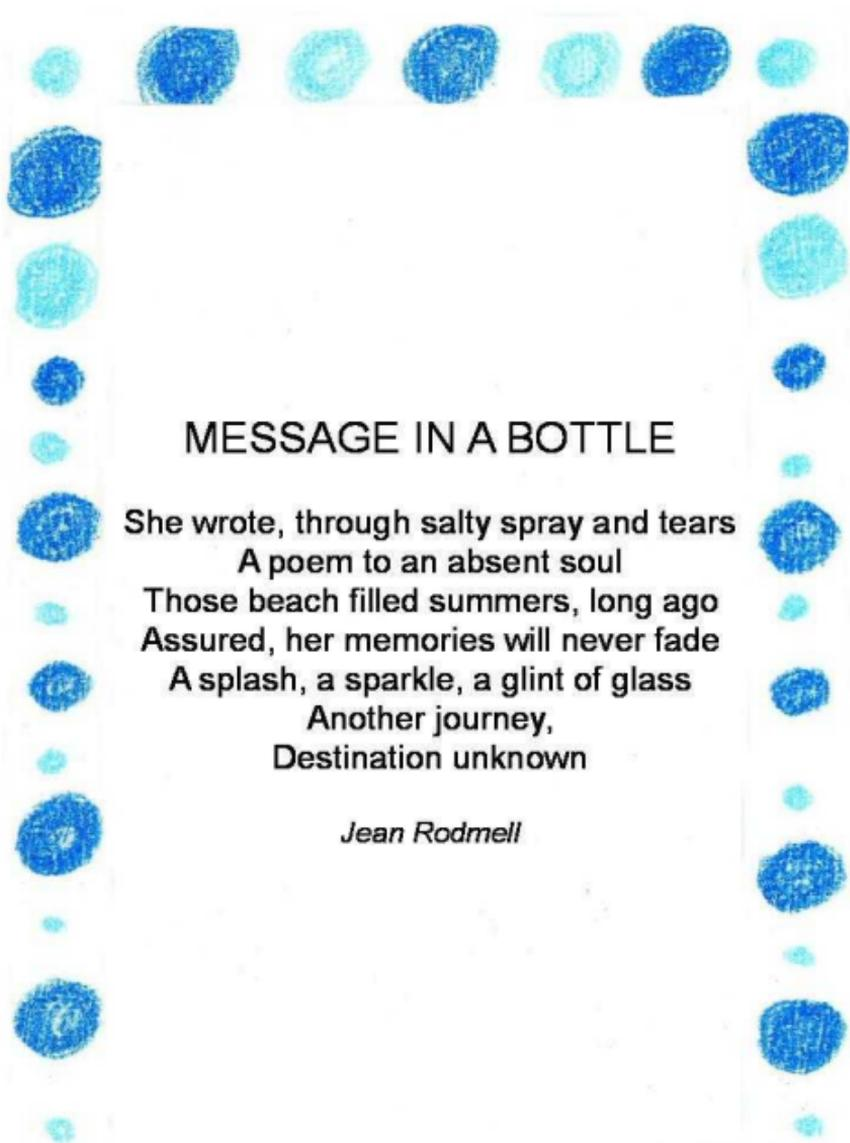 MESSAGE IN A BOTTLE
She wrote, through salty spray and tears
A poem to an absent soul
Those beach filled summers, long ago
Assured, her memories will never fade
A splash, a sparkle, a glint of glass
Another journey,
Destination unknown
Jean Rodmell